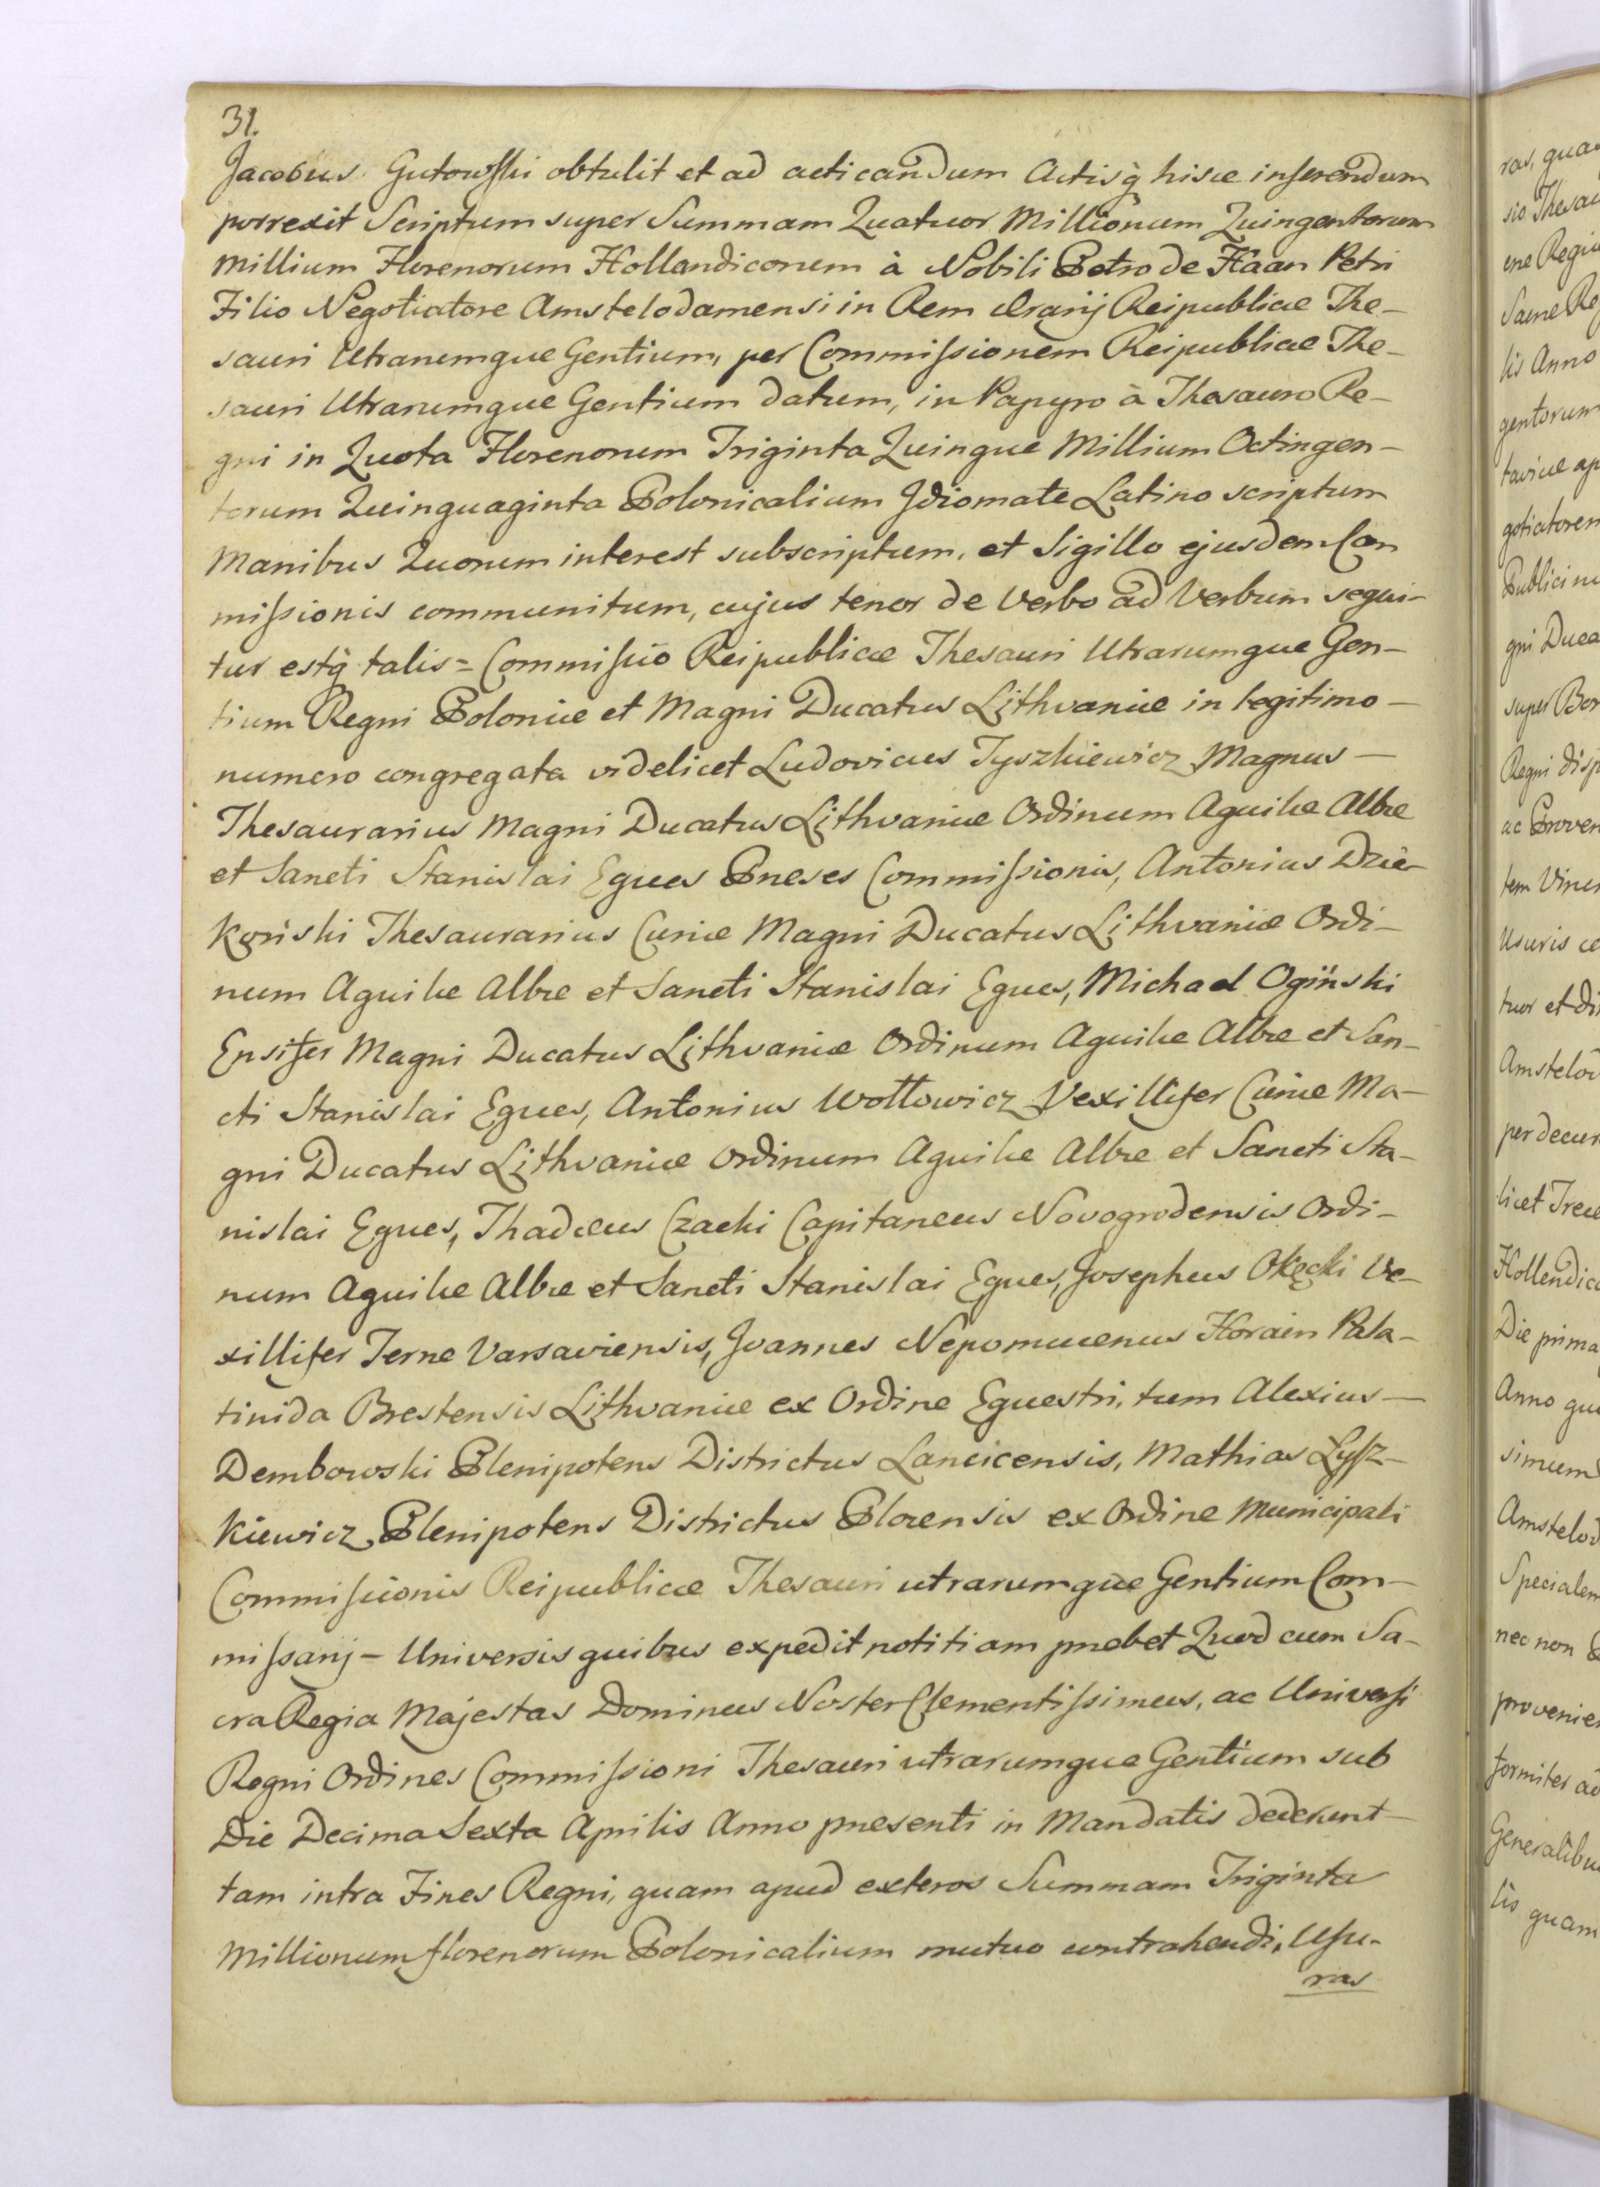 31.
Jacobus Gutowski obtulit et ad acticandum Actisq̀ hisce inserendum
porrexit Scriptum super Summam Quatuor Millionum Quingentorum
Millium Florenorum Hollandicorum à Nobili Petro de Haan Petri
Filio Negotiatore Amstelodamensi in Rem Ærarij Reipublicæ The-
sauri Utrarumque Gentium, per Commissionem Reipublicæ The-
sauri Utrarumque Gentium datum, in Papyro à Thesauro Re-
gni in Quota Florenorum Triginta Quinque Millium Octingen-
torum Quinquaginta Polonicalium Jdiomate Latino scriptum
Manibus Quorum interest subscriptum, et Sigillo ejusdem Com
missionis communitum, cujus tenor de Verbo ad Verbum sequi-
tur estq̀ talis = Commissio Reipublicæ Thesauri Utrarumque Gen-
tium Regni Poloniæ et Magni Ducatus Lithvaniæ in legitimo -
numero congregata videlicet Ludovicus Tyszkiewicz Magnus -
Thesaurarius Magni Ducatus Lithvaniæ Ordinum Aquilæ Albæ
et Sancti Stanislai Eques Præses Commissionis, Antonius Dzie-
koński Thesaurarius Curiæ Magni Ducatus Lithvaniæ Ordi-
num Aquilæ Albæ et Sancti Stanislai Eques, Michael Ogiński
Ensifer Magni Ducatus Lithvaniæ Ordinum Aquilæ Albæ et San-
cti Stanislai Eques, Antonius Wołłowicz Vexillifer Curiæ Ma-
gni Ducatus Lithvaniæ Ordinum Aquilæ Albæ et Sancti Sta-
nislai Eques, Thadæus Czacki Capitaneus Novogrodensis Ordi-
num Aquilæ Albæ et Sancti Stanislai Eques, Josephus Okęcki Ve-
xillifer Terræ Varsaviensis, Joannes Nepomucenus Horain Pala-
tinida Brestensis Lithvaniæ ex Ordine Equestri, tum Alexius -
Dembowski Plenipotens Districtus Lancicensis, Mathias Łysz-
kiewicz Plenipotens Districtus Plocensis ex Ordine Municipali
Commissionis Reipublicæ Thesauri utrarumque Gentium Com-
missarij - Universis quibus expedit notitiam præbet Quod cum Sa-
cra Regia Majestas Dominus Noster Clementissimus, ac Universi
Regni Ordines Commissioni Thesauri utrarumque Gentium sub
Die Decima Sexta Aprilis Anno præsenti in Mandatis dederunt
tam intra Fines Regni, quam apud exteros Summam Triginta
Millionum florenorum Polonicalium mutuo contrahendi, Usu-
ras